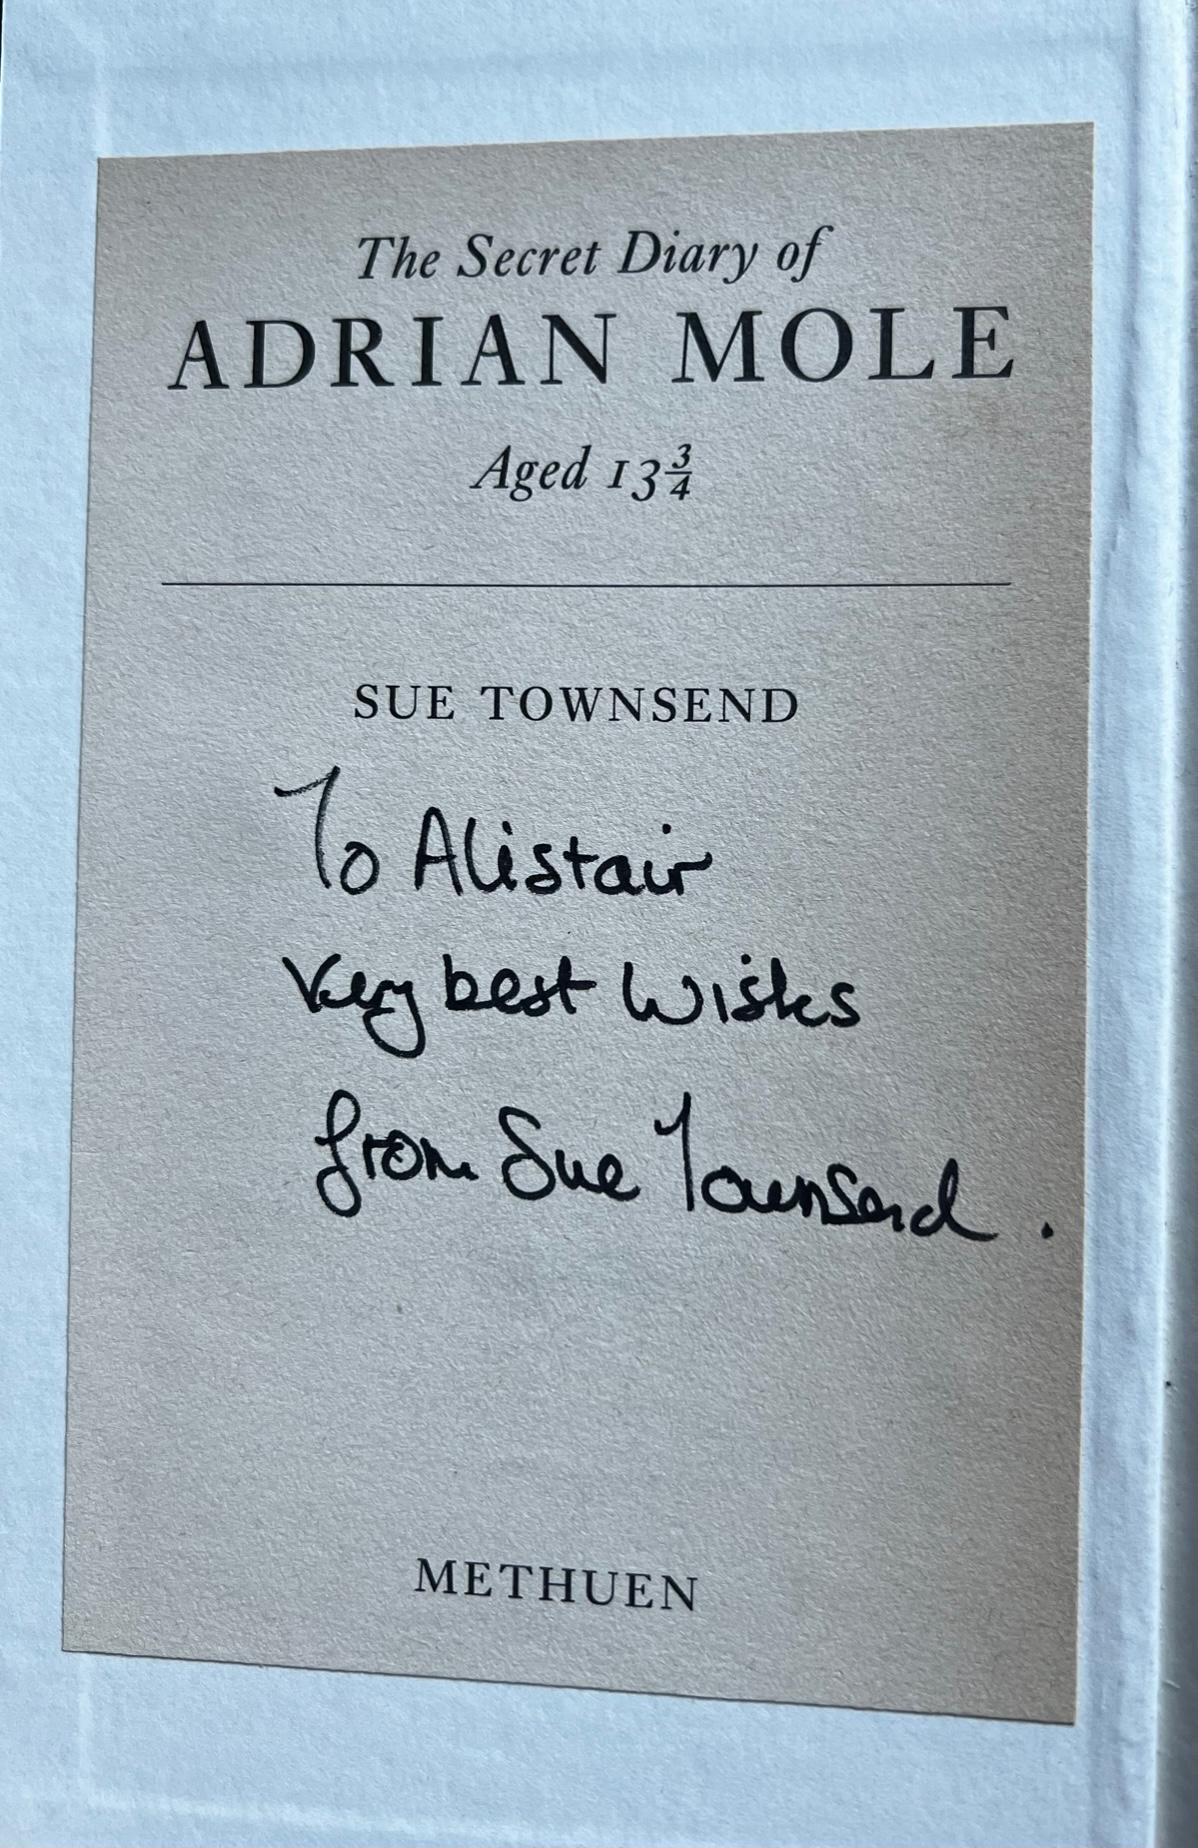 The Secret Diary of
ADRIAN MOLE
Aged 13¾
SUE TOWNSEND
To Alistair
Very best Wishes
from Sue Townsend.
METHUEN